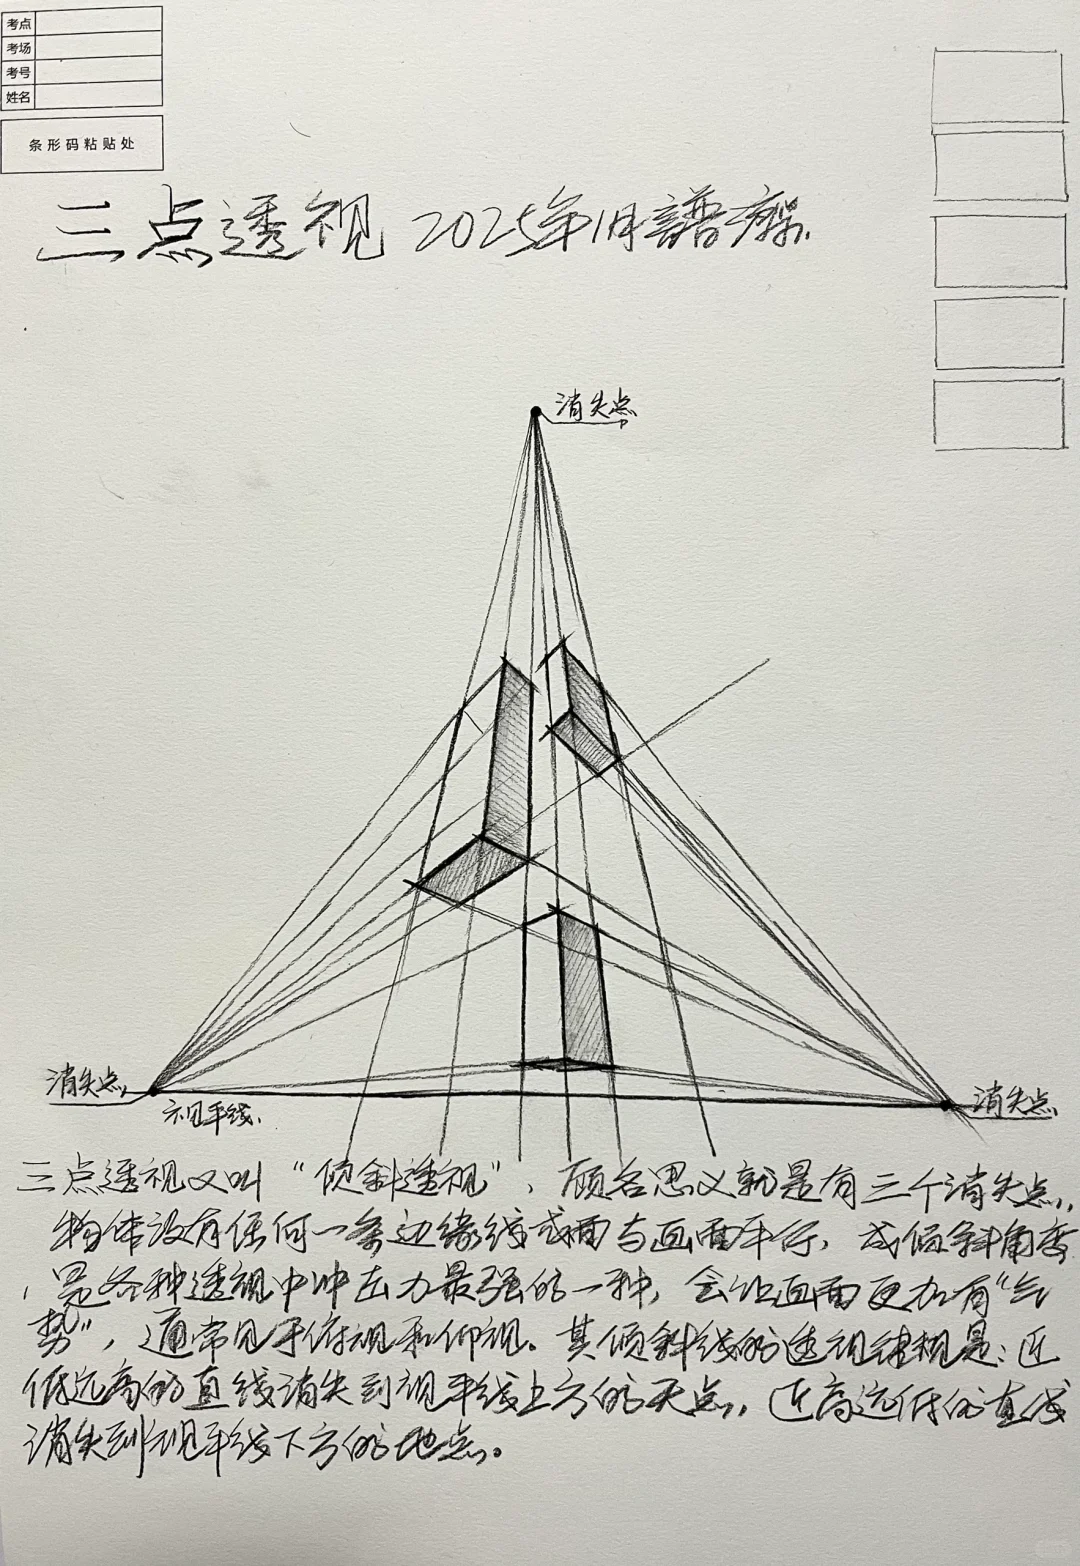 考点
考场
考号
姓名
条形码粘贴处
三点透视 2025年1月
消失点
消失点
视平线
消失点
三点透视又叫“倾斜透视”，顾名思义就是有三个消失点，
物体没有任何一条边缘线或面与画面平行，成倾斜角度
，是各种透视中冲击力最强的一种，会让画面更加有“气
势”，通常见于俯视和仰视。其倾斜线的透视规律是：近
低远高的直线消失到视平线上方的天点，近高远低的直线
消失到视平线下方的地点。